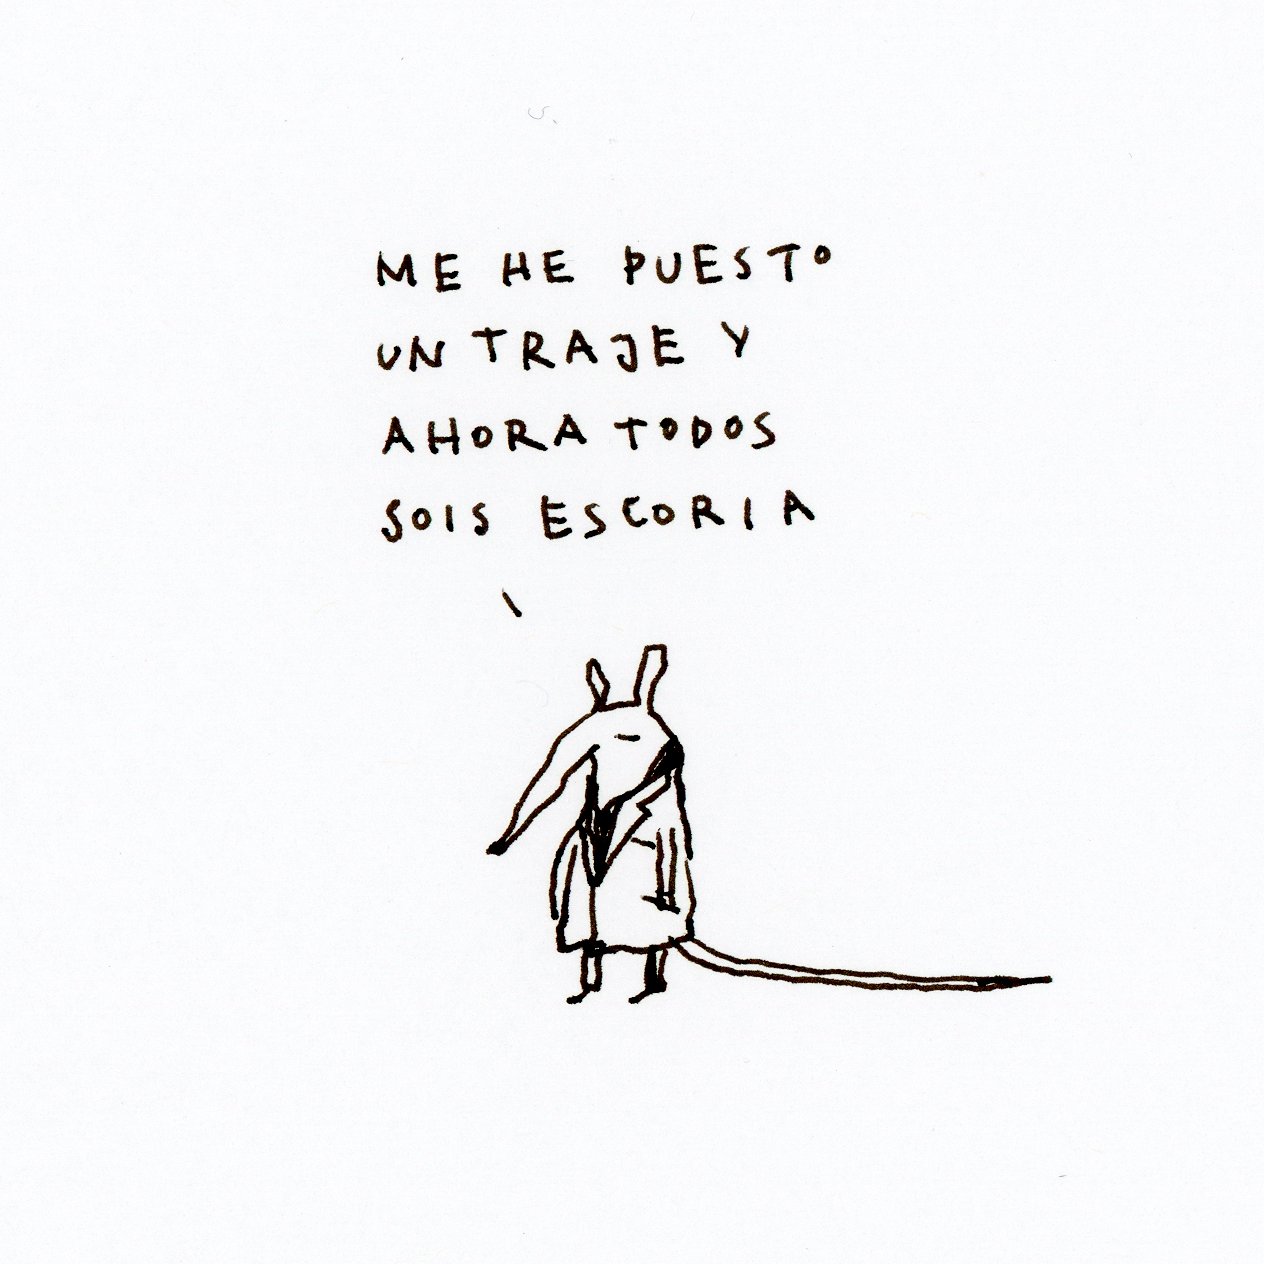 ME HE PUESTO
UN TRAJE Y
AHORA TODOS
SOIS ESCORIA